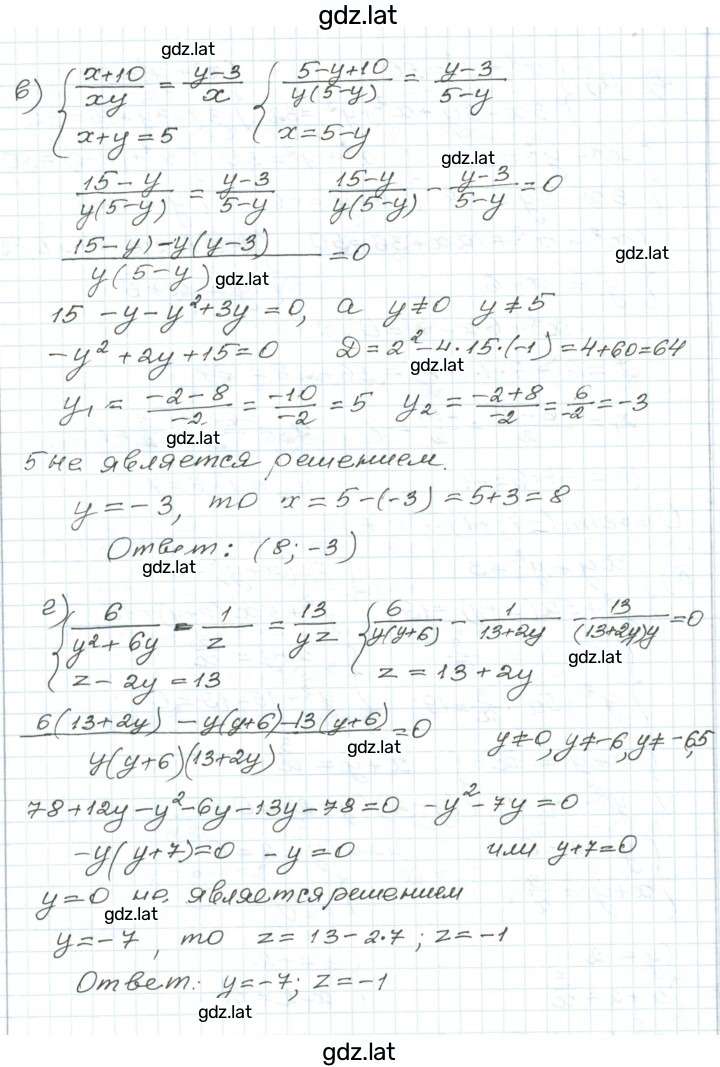 gdz.lat
gdz.lat
в) { (x+10)/(xy) = (y-3)/x { (5-y+10)/(y(5-y)) = (y-3)/(5-y)
x+y=5 x=5-y
gdz.lat
(15-y)/(y(5-y)) = (y-3)/(5-y) (15-y)/(y(5-y)) - (y-3)/(5-y) = 0
((15-y)-y(y-3))/(y(5-y)) = 0 gdz.lat
gdz.lat
15 -y-y²+3y=0, а y≠0 y≠5
-y²+2y+15=0 D=2²-4·15·(-1)=4+60=64
gdz.lat
y₁ = (-2-8)/(-2) = (-10)/(-2) = 5 y₂ = (-2+8)/(-2) = 6/(-2) = -3
gdz.lat
5 не является решением.
y=-3, то x=5-(-3)=5+3=8
Ответ: (8; -3)
gdz.lat
г) { 6/(y²+6y) - 1/z = 13/(yz) { 6/(y(y+6)) - 1/(13+2y) - 13/((13+2y)y) = 0
z-2y=13 z=13+2y
gdz.lat
(6(13+2y)-y(y+6)-13(y+6))/(y(y+6)(13+2y)) = 0 y≠0, y≠-6, y≠-6,5
gdz.lat
78+12y-y²-6y-13y-78=0 -y²-7y=0
-y(y+7)=0 -y=0 или y+7=0
y=0 не является решением
gdz.lat
y=-7, то z=13-2·7; z=-1
Ответ: y=-7; z=-1
gdz.lat
gdz.lat